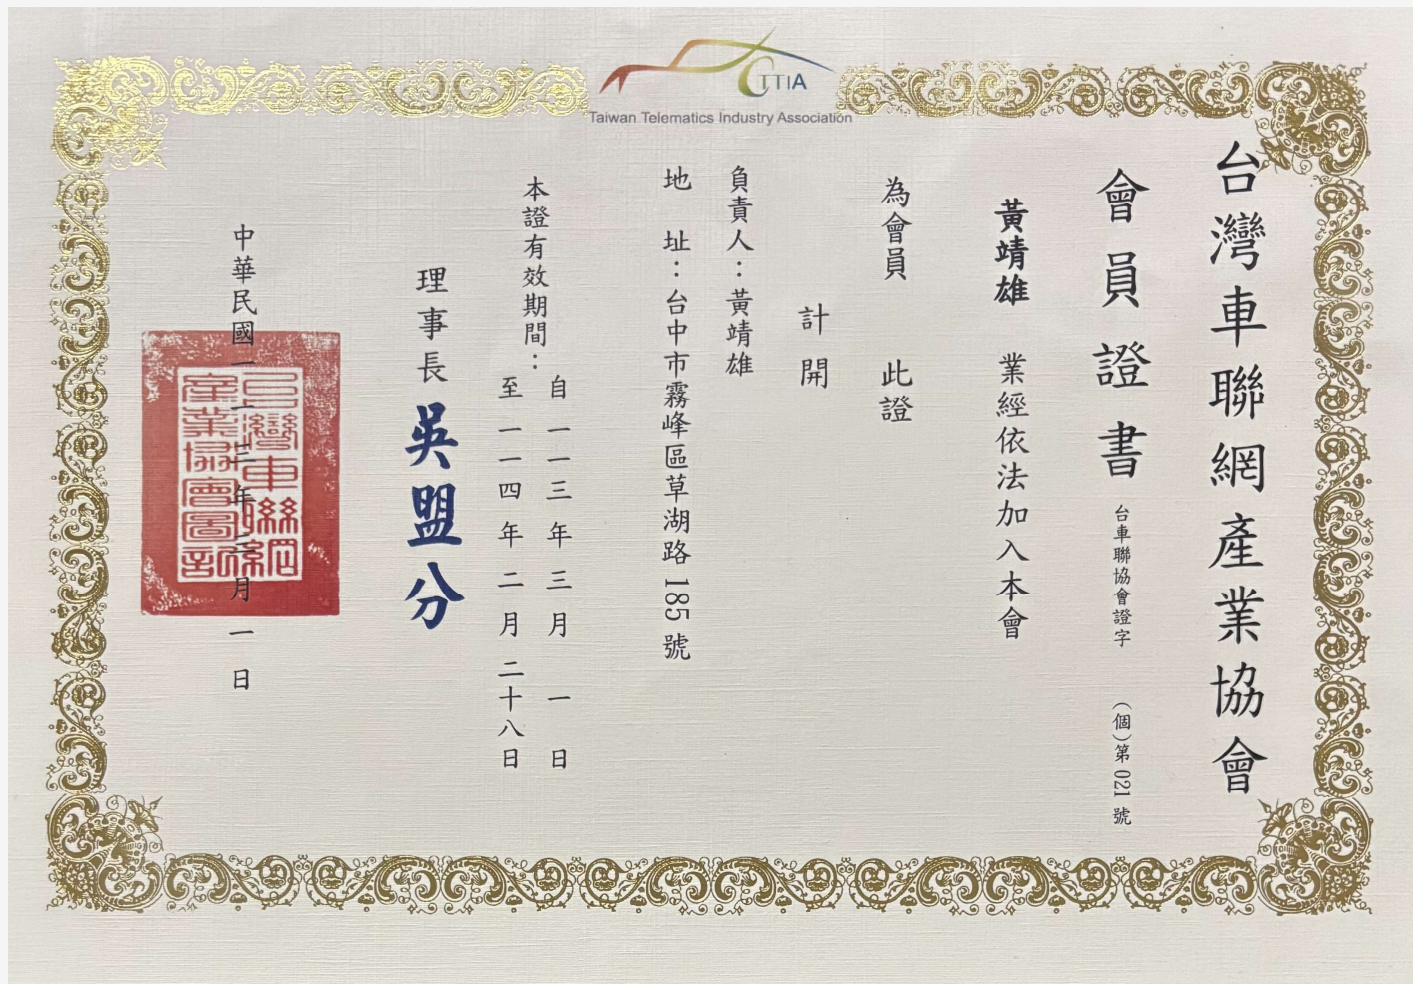 TTIA
Taiwan Telematics Industry Association
台灣車聯網產業協會
會員證書
台車聯協會證字 (個)第021號
黃靖雄 業經依法加入本會
為會員 此證
計開
負責人：黃靖雄
地 址：台中市霧峰區草湖路185號
本證有效期間：
自一一三年三月一日
至一一四年二月二十八日
理事長 吳盟分
中華民國一一三年三月一日
台灣車聯網
產業協會圖記